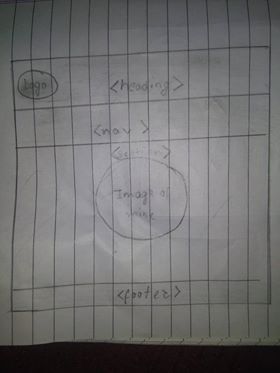 logo <heading>
<nav>
<section>
Image of
mine
<footer>